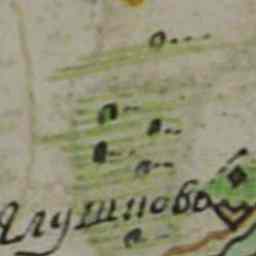 Ялушново